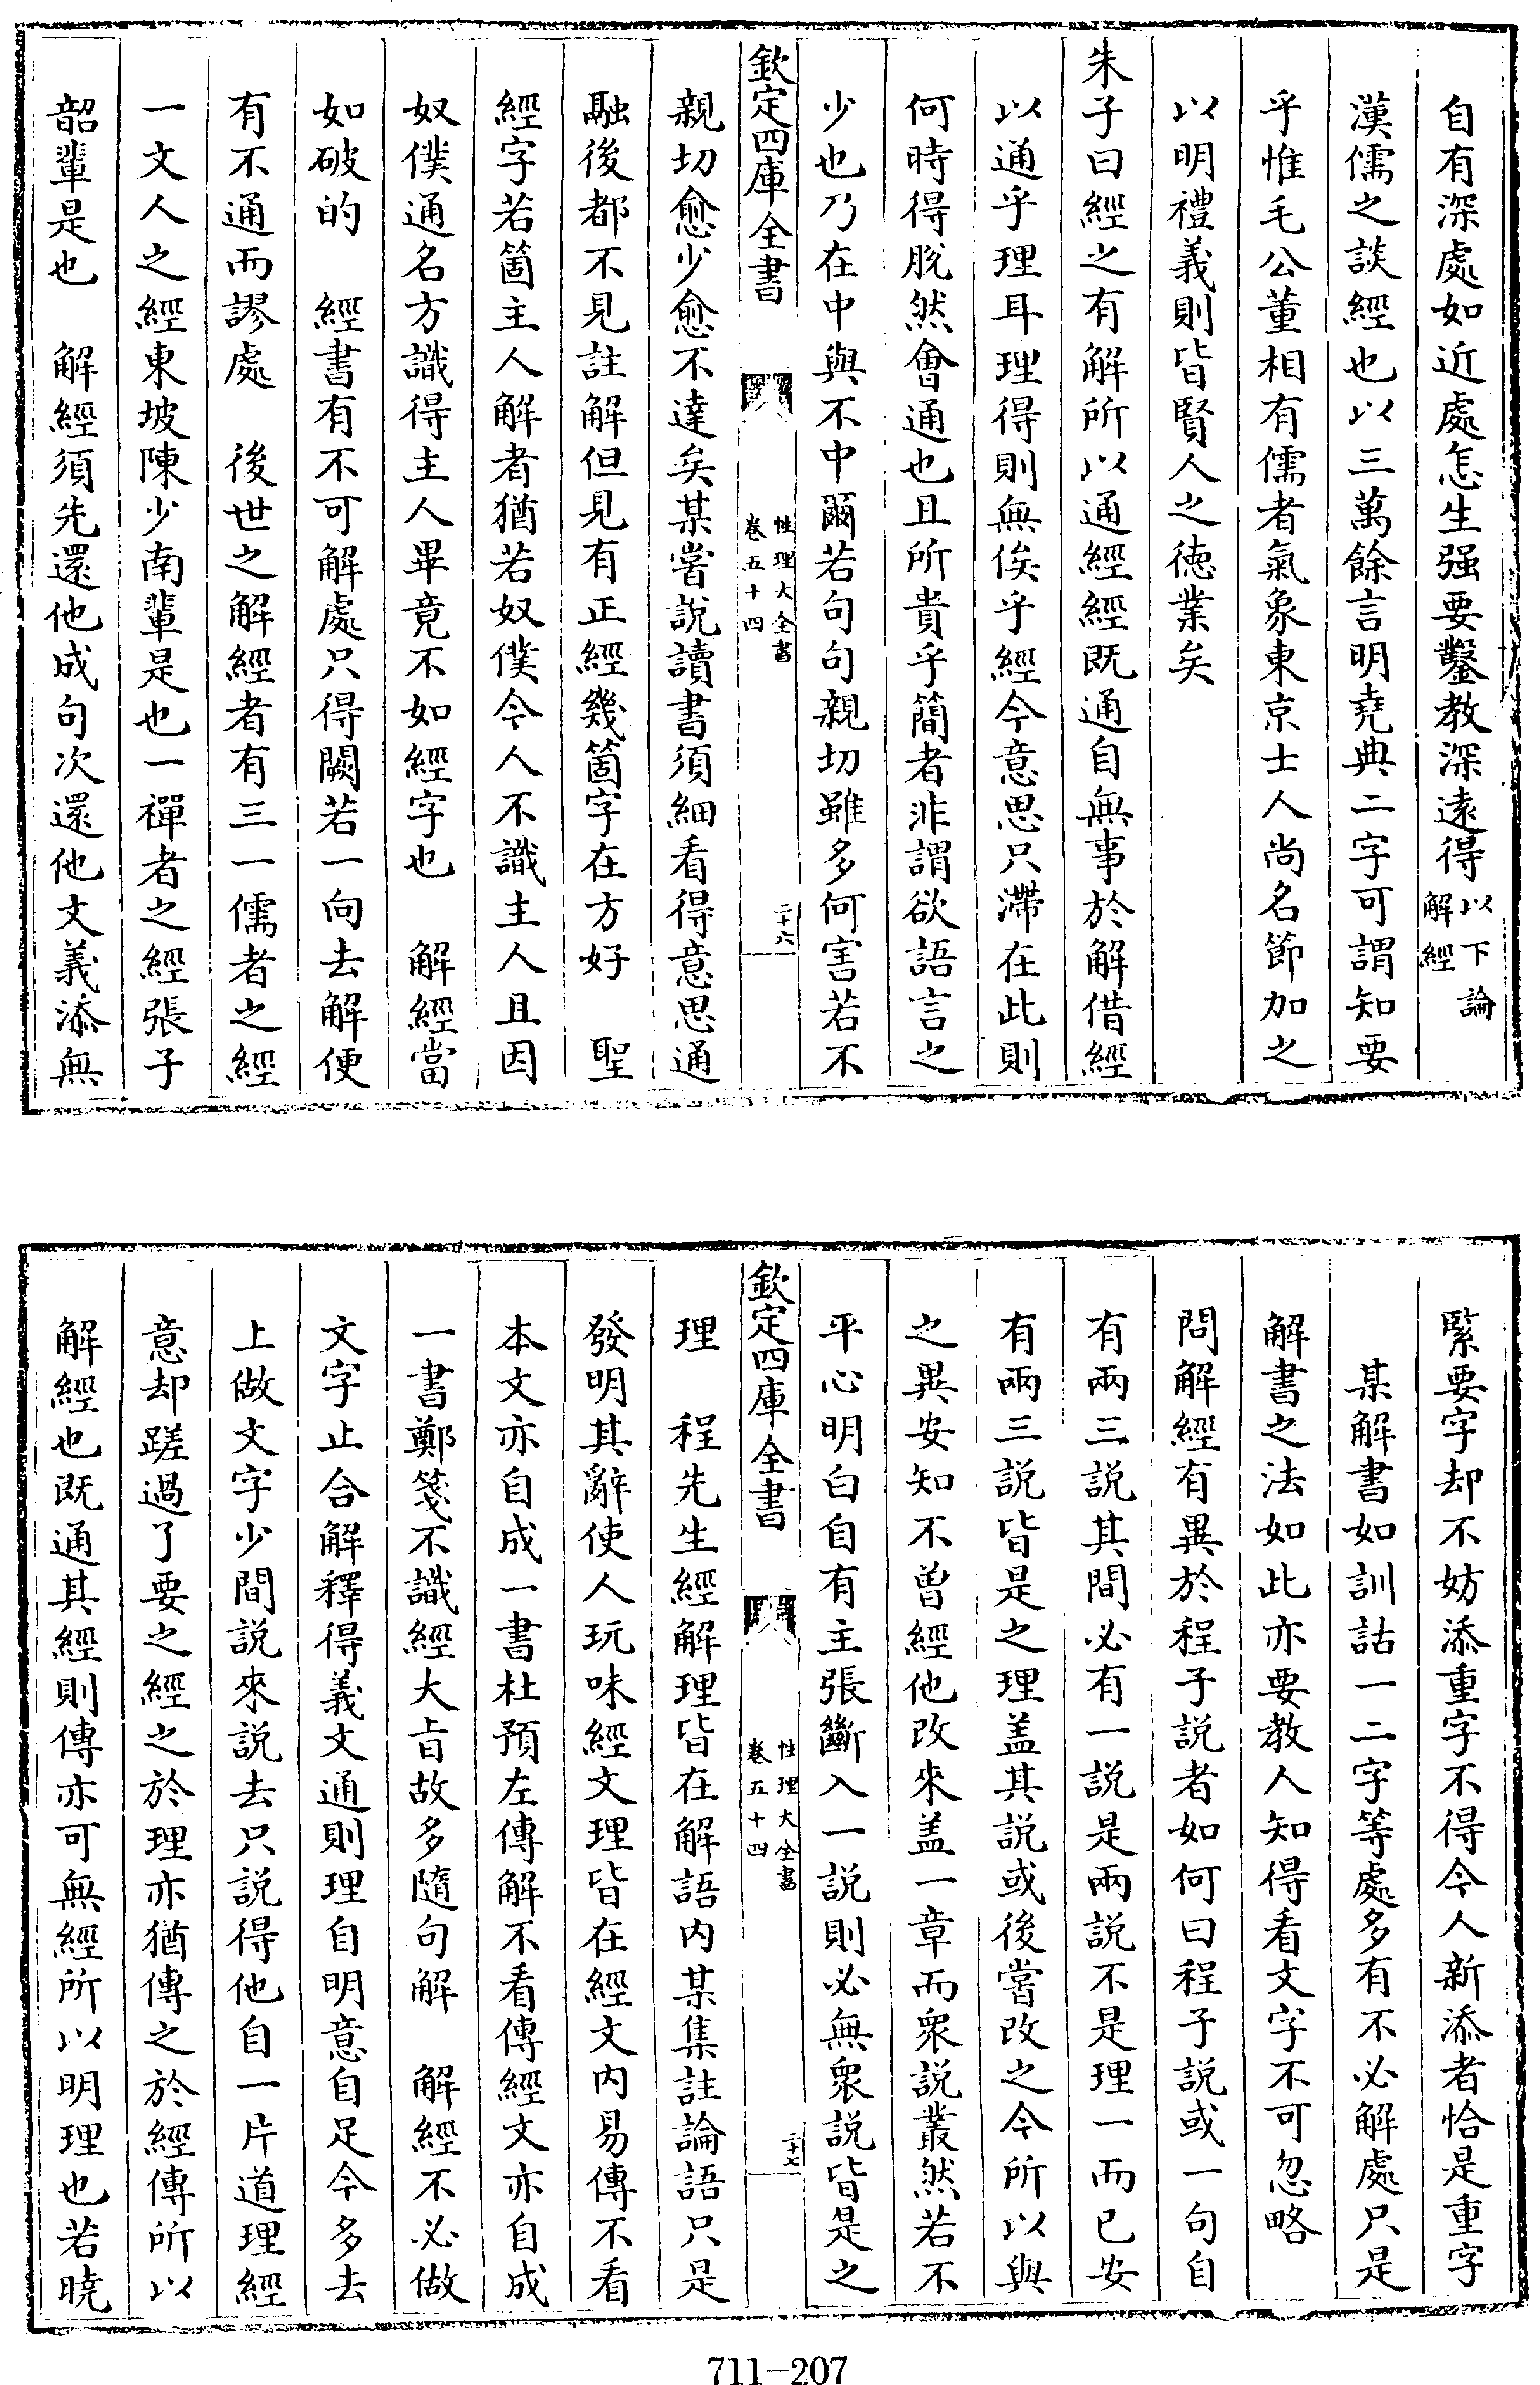 自有深處如近處怎生强要鑿教深逺得以下論解經
漢儒之談經也以三萬餘言明堯典二字可謂知要
乎惟毛公董相有儒者氣象東京士人尚名節加之
以明禮義則皆賢人之徳業矣
朱子曰經之有解所以通經經既通自無事於解借經
以通乎理耳理得則無俟乎經今意思只滯在此則
何時得脱然㑹通也且所貴乎簡者非謂欲語言之
少也乃在中與不中爾若句句親切雖多何害若不
欽定四庫全書
性理大全書
卷五十四
二十六
親切愈少愈不達矣某嘗說讀書須細看得意思通
融後都不見註解但見有正經幾箇字在方好　聖
經字若箇主人解者猶若奴僕今人不識主人且因
奴僕通名方識得主人畢竟不如經字也　解經當
如破的　經書有不可解處只得闕若一向去解便
有不通而謬處　後世之解經者有三一儒者之經
一文人之經東坡陳少南輩是也一禪者之經張子
韶輩是也　解經須先還他成句次還他文義添無
緊要字却不妨添重字不得今人新添者恰是重字
某解書如訓詁一二字等處多有不必解處只是
解書之法如此亦要教人知得看文字不可忽略
問解經有異於程子說者如何曰程子說或一句自
有兩三說其間必有一說是兩說不是理一而已安
有兩三說皆是之理盖其説或後嘗改之今所以與
之異安知不曽經他改來盖一章而衆説叢然若不
平心明白自有主張斷入一說則必無衆說皆是之
欽定四庫全書
性理大全書
卷五十四
二十七
理　程先生經解理皆在解語内某集註論語只是
發明其辭使人玩味經文理皆在經文内易傳不看
本文亦自成一書杜預左傳解不看傳經文亦自成
一書鄭箋不識經大㫖故多隨句解　解經不必做
文字止合解釋得義文通則理自明意自足今多去
上做文字少間說來說去只說得他自一片道理經
意却蹉過了要之經之於理亦猶傳之於經傳所以
解經也既通其經則傳亦可無經所以明理也若曉
711-207